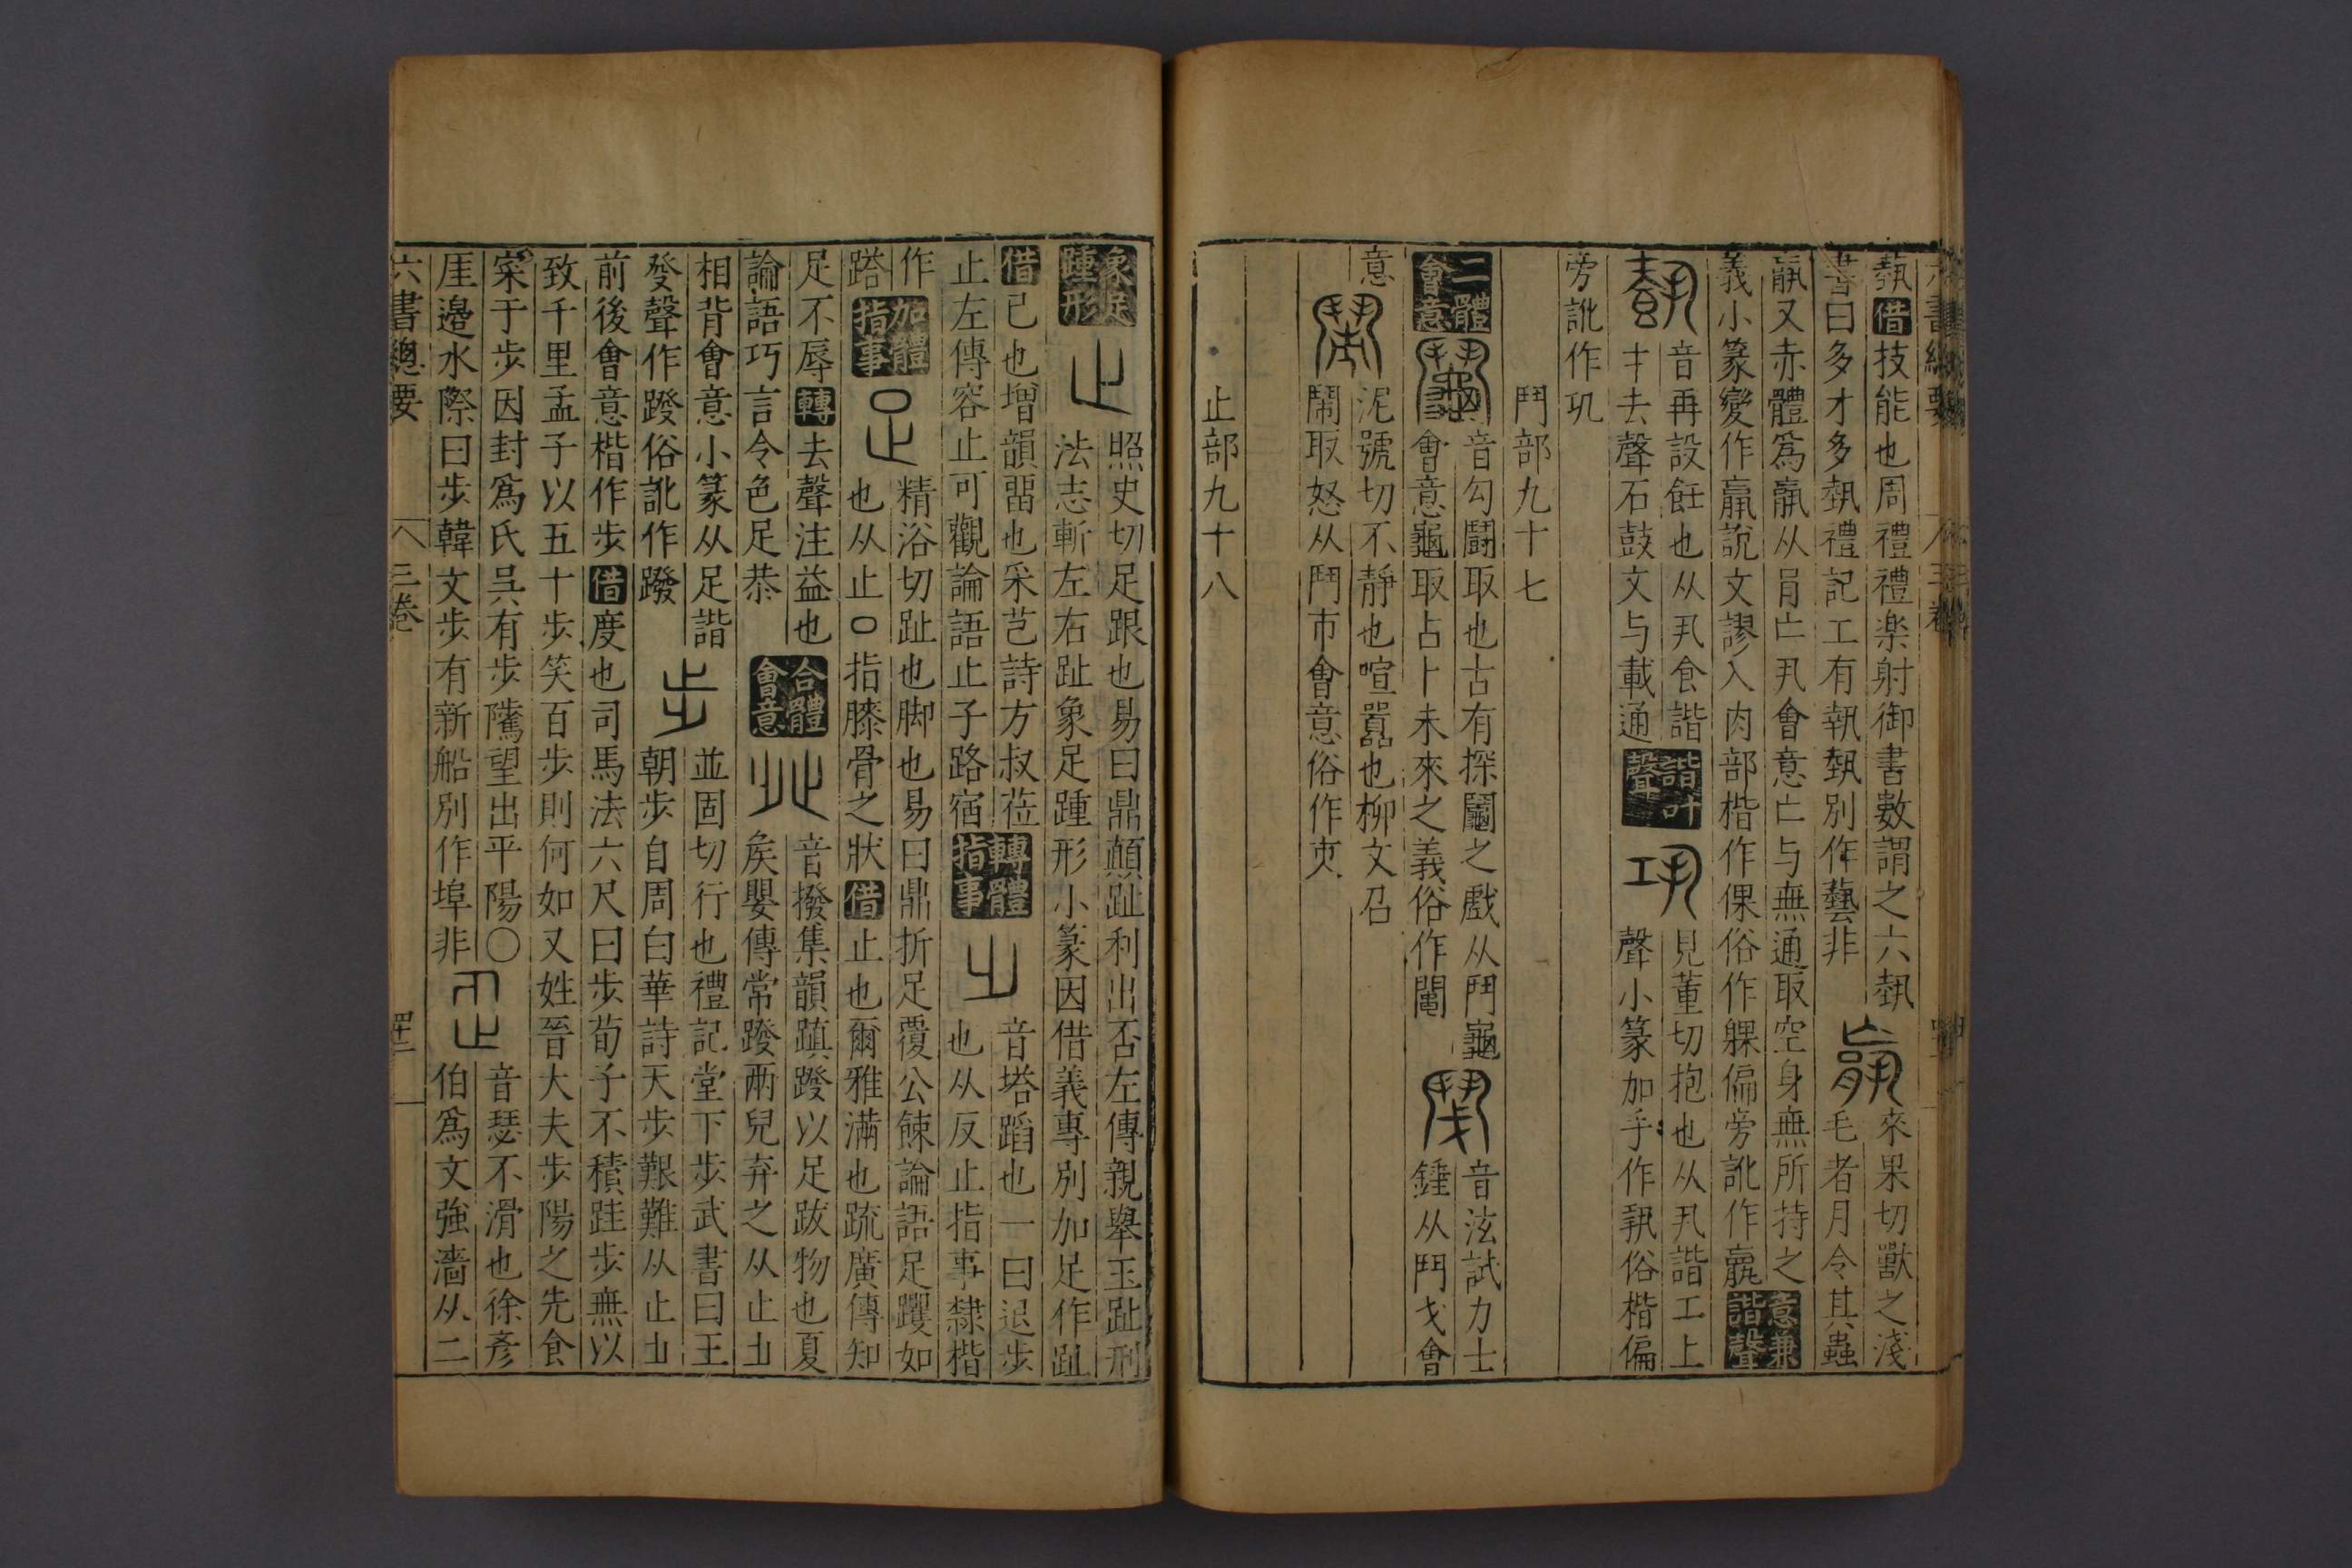 埶借技能也周禮禮楽射御書數謂之六埶
書曰多才多埶禮記工有執埶別作藝非 來果切獸之淺毛者月令其蟲
羸又赤體為羸从肙亡丮會意亡与無通取空身無所持之
義小篆變作羸說文謬入肉部楷作倮俗作躶偏旁訛作 意兼諧聲
音再設飪也从丮食諧才去聲石鼓文与載通 諧叶聲 見董切抱也从丮諧工上聲小篆加手作 俗楷偏
旁訛作巩
鬥部九十七
二體會意 音勾鬪取也古有探鬮之戲从鬥龜會意龜取占卜未來之義俗作鬮 音泫試力士錘从鬥戈會
意 泥號切不靜也喧嚣也柳文召鬧取怒从鬥市會意俗作
止部九十八
象足踵形 止 照史切足跟也易曰鼎顛趾利出否左傳親舉玉趾刑法志斬左右趾象足踵形小篆因借義專別加足作趾
借已也增韻畱也采芑詩方叔莅止左傳容止可觀論語止子路宿 轉體指事 音塔蹈也一曰退步也从反止指事隸楷
作蹹 加體指事 足 精浴切趾也脚也易曰鼎折足覆公餗論語足躩如也从止○指膝骨之狀借止也爾雅滿也疏廣傳知
足不辱轉去聲注益也論語巧言令色足恭 合體會意 癶 音撥集韻蹎蹳以足跋物也夏侯嬰傳常蹳兩兒弃之从止
相背會意小篆从足諧發聲作蹳俗訛作 步 並固切行也禮記堂下步武書曰王朝步自周白華詩天步艱難从止
前後會意楷作步借度也司馬法六尺曰步荀子不積跬步無以
致千里孟子以五十步笑百步則何如又姓晉大夫步陽之先食
寀于步因封為氏吳有步騭望出平陽○
厓邉水際曰步韓文步有新船別作埠非 音瑟不滑也徐彥伯為文強濇从二
六書總要 三卷